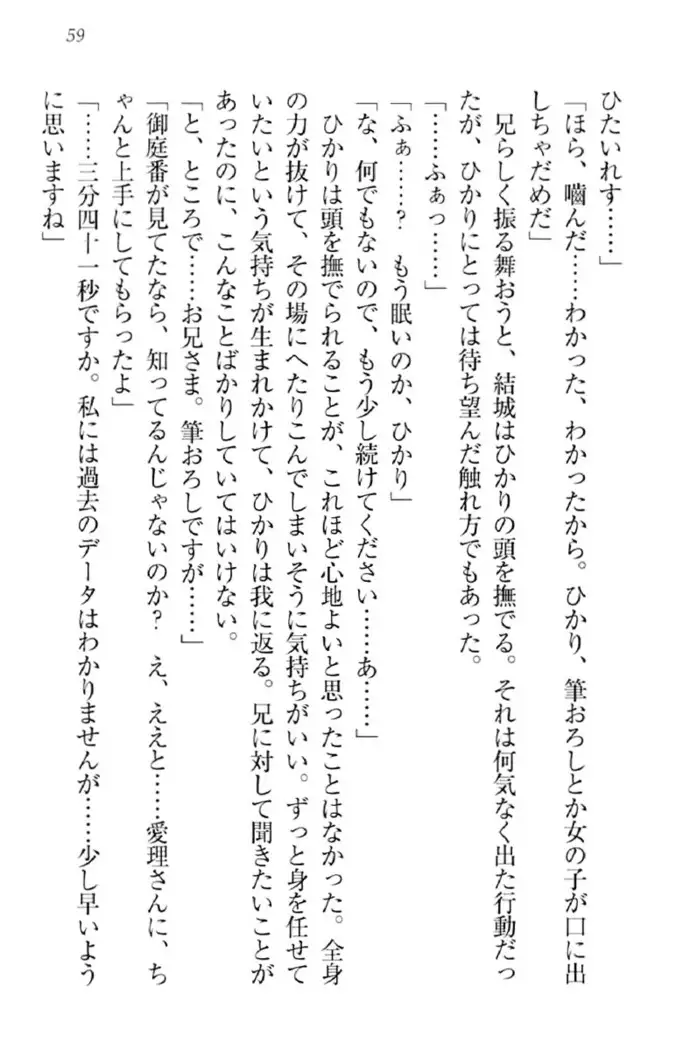 59
ひたいれす……」
「ほら、噛んだ……わかった、わかったから。ひかり、筆おろしとか女の子が口に出
しちゃだめだ」
兄らしく振る舞おうと、結城はひかりの頭を撫でる。それは何気なく出た行動だっ
たが、ひかりにとっては待ち望んだ触れ方でもあった。
「……ふぁっ……」
「ふぁ……？　もう眠いのか、ひかり」
「な、何でもないので、もう少し続けてください……あ……」
ひかりは頭を撫でられることが、これほど心地よいと思ったことはなかった。全身
の力が抜けて、その場にへたりこんでしまいそうに気持ちがいい。ずっと身を任せて
いたいという気持ちが生まれかけて、ひかりは我に返る。兄に対して聞きたいことが
あったのに、こんなことばかりしていてはいけない。
「と、ところで……お兄さま。筆おろしですが……」
「御庭番が見てたなら、知ってるんじゃないのか？　え、ええと……愛理さんに、ち
ゃんと上手にしてもらったよ」
「……三分四十一秒ですか。私には過去のデータはわかりませんが……少し早いよう
に思いますね」